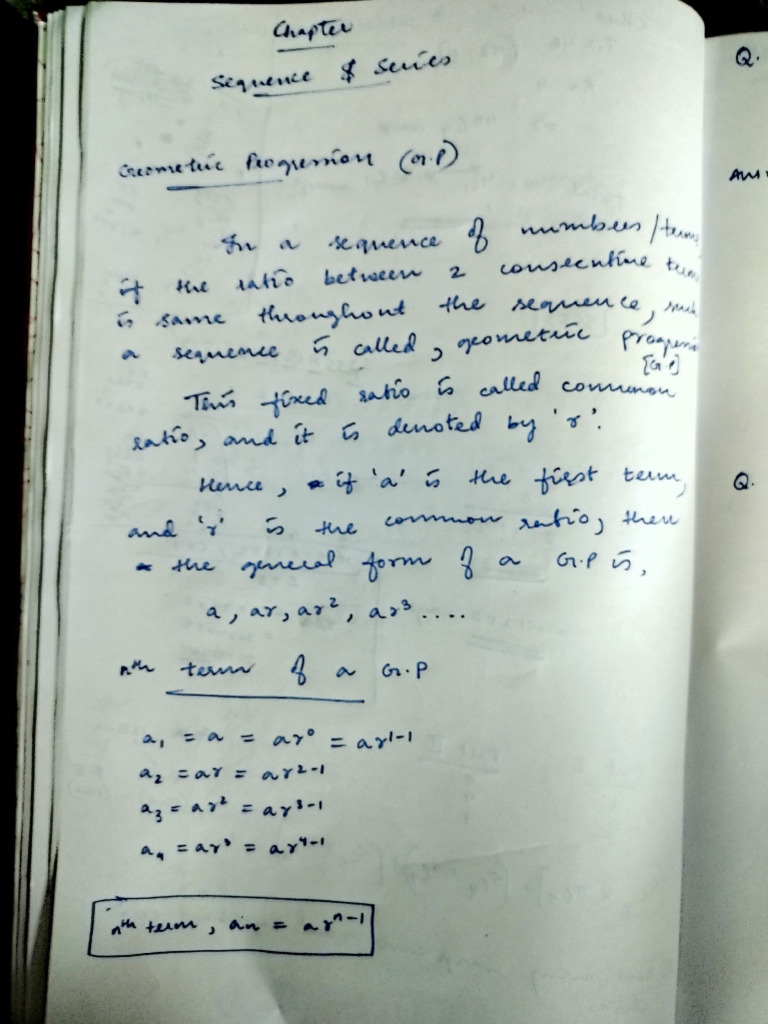 Chapter
Sequence & Series
Geometric Progression (G.P)
In a sequence of numbers/terms
if the ratio between 2 consecutive terms
is same throughout the sequence, such
a sequence is called, geometric progression
[G.P]
This fixed ratio is called common
ratio, and it is denoted by 'r'.
Hence, if 'a' is the first term,
and 'r' is the common ratio, then
the general form of a G.P is,
a, ar, ar², ar³ ....
nth term of a G.P
a₁ = a = ar⁰ = ar¹⁻¹
a₂ = ar = ar²⁻¹
a₃ = ar² = ar³⁻¹
a₄ = ar³ = ar⁴⁻¹
nth term, an = arⁿ⁻¹
Q.
Ans
Q.